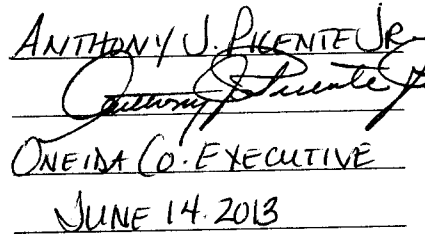 ANTHONY J. PICENTE JR
Anthony J Picente Jr
ONEIDA CO. EXECUTIVE
JUNE 14. 2013